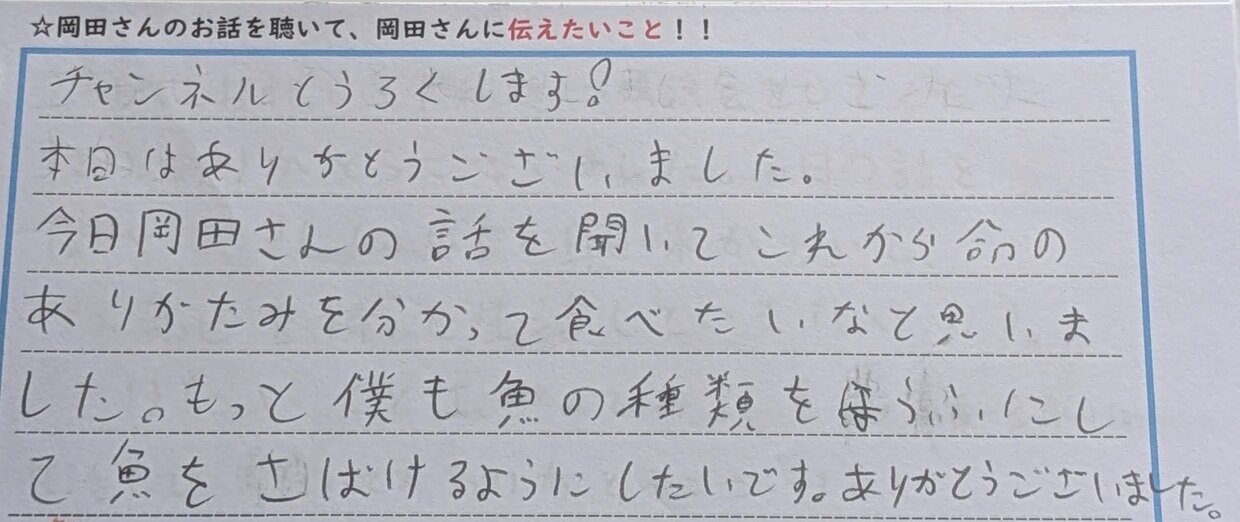 ☆岡田さんのお話を聴いて、岡田さんに伝えたいこと！！
チャンネルとうろくします!
本日はありがとうございました。
今日岡田さんの話を聞いてこれから命の
ありがたみを分かって食べたいなと思いま
した。もっと僕も魚の種類をほうふにし
て魚をさばけるようにしたいです。ありがとうございました。